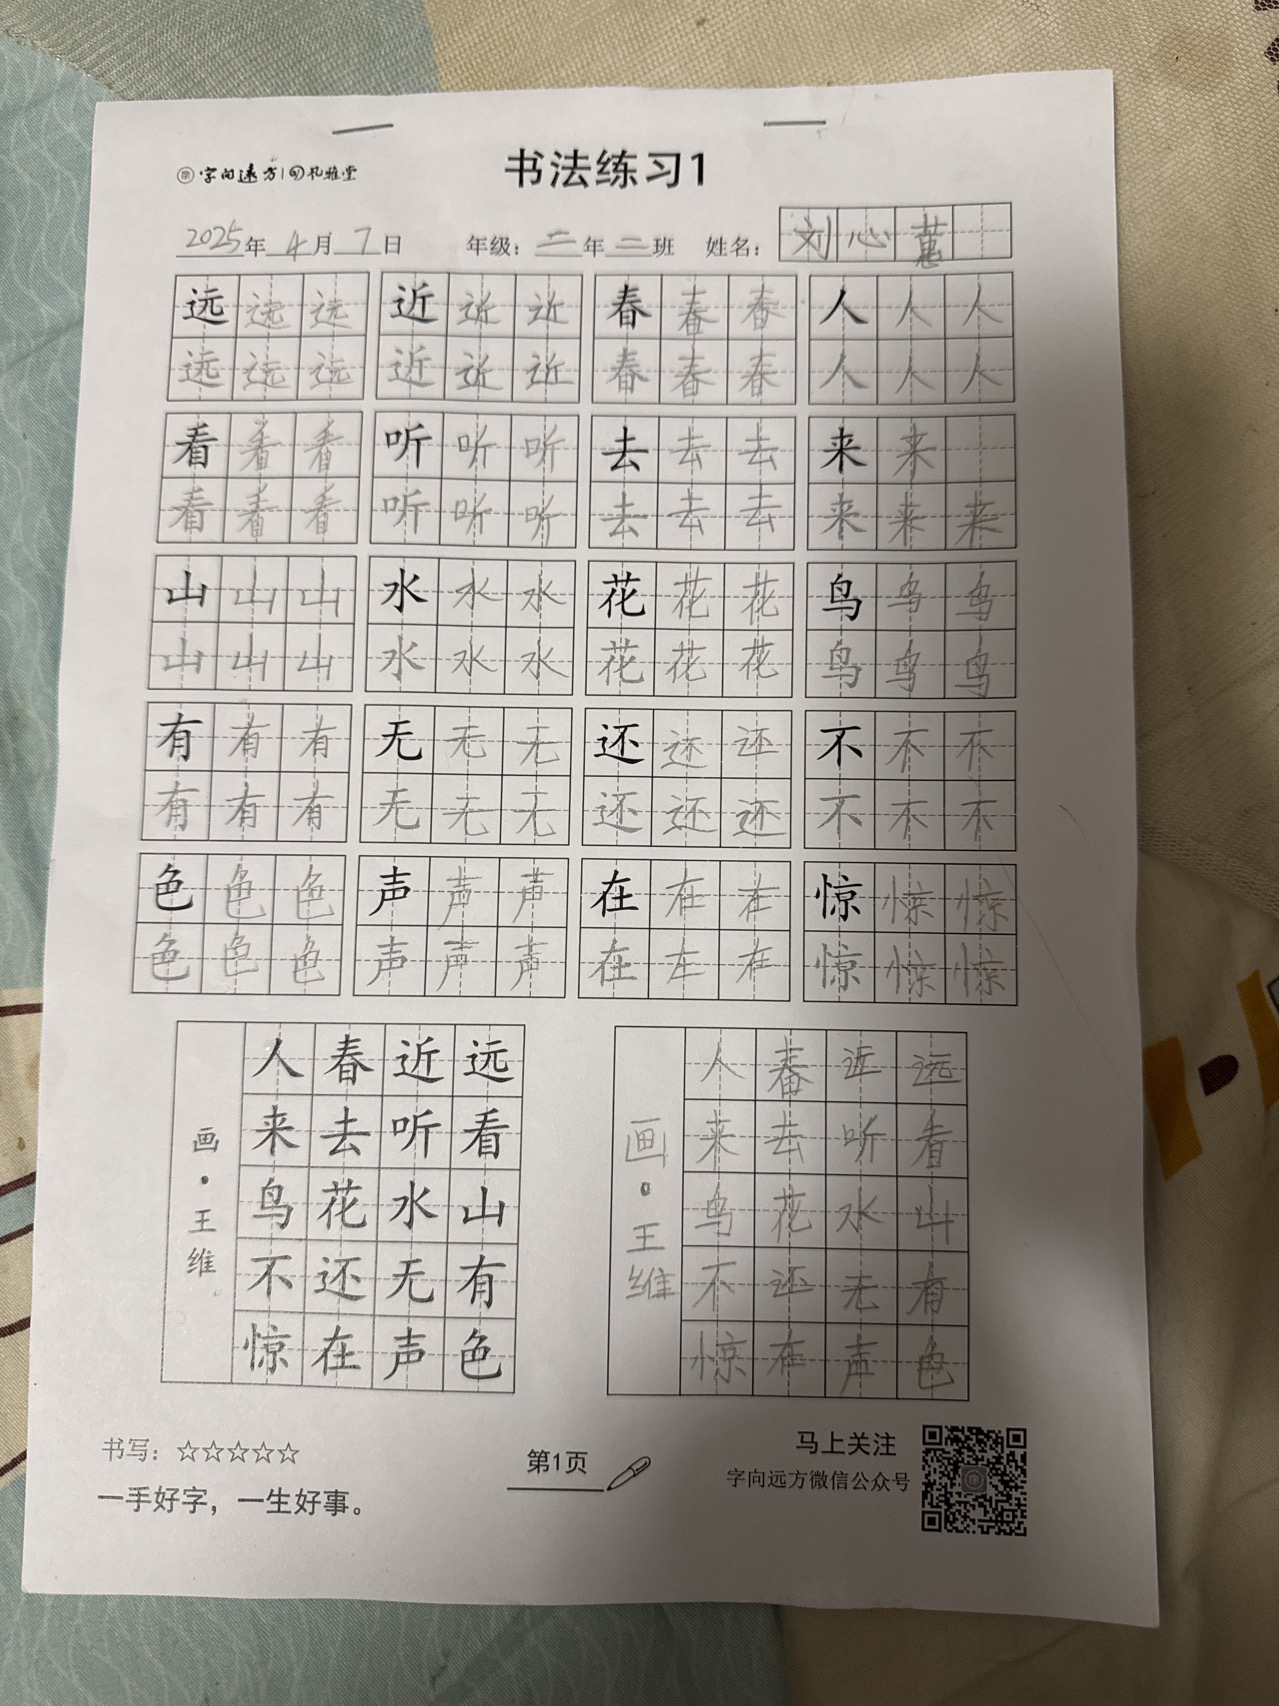 字向远方 礼雅堂
书法练习1
2025年 4月 7日 年级：二年二班 姓名：刘心蕙
远远远 近近近 春春春 人人人
远远远 近近近 春春春 人人人
看看看 听听听 去去去 来来
看看看 听听听 去去去 来来来
山山山 水水水 花花花 鸟鸟鸟
山山山 水水水 花花花 鸟鸟鸟
有有有 无无无 还还还 不不不
有有有 无无无 还还还 不不不
色色色 声声声 在在在 惊惊惊
色色色 声声声 在在在 惊惊惊
远看山有色
近听水无声
春去花还在
人来鸟不惊
画·王维
远看山有色
近听水无声
春去花还在
人来鸟不惊
画·王维
书写：☆☆☆☆☆
一手好字，一生好事。
第1页
马上关注
字向远方微信公众号